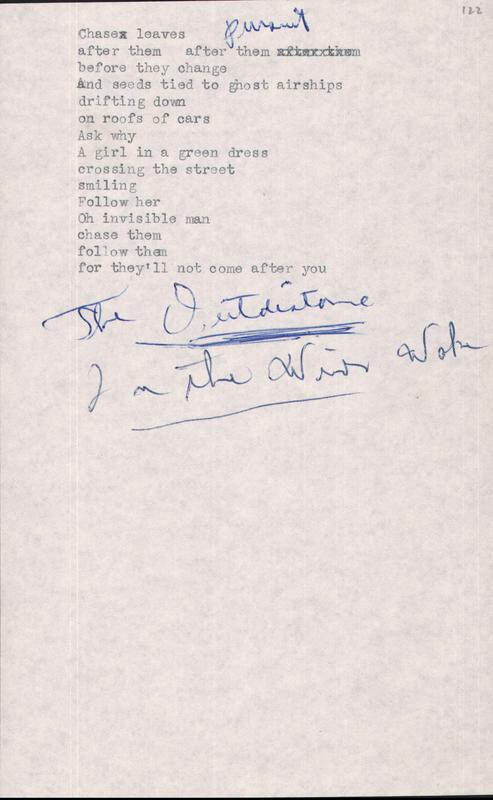 122
pursuit
Chasex leaves
after them after them after them
before they change
And seeds tied to ghost airships
drifting down
on roofs of cars
Ask why
A girl in a green dress
crossing the street
smiling
Follow her
Oh invisible man
chase them
follow them
for they'll not come after you
The Outdistance
In the Wind's Wake